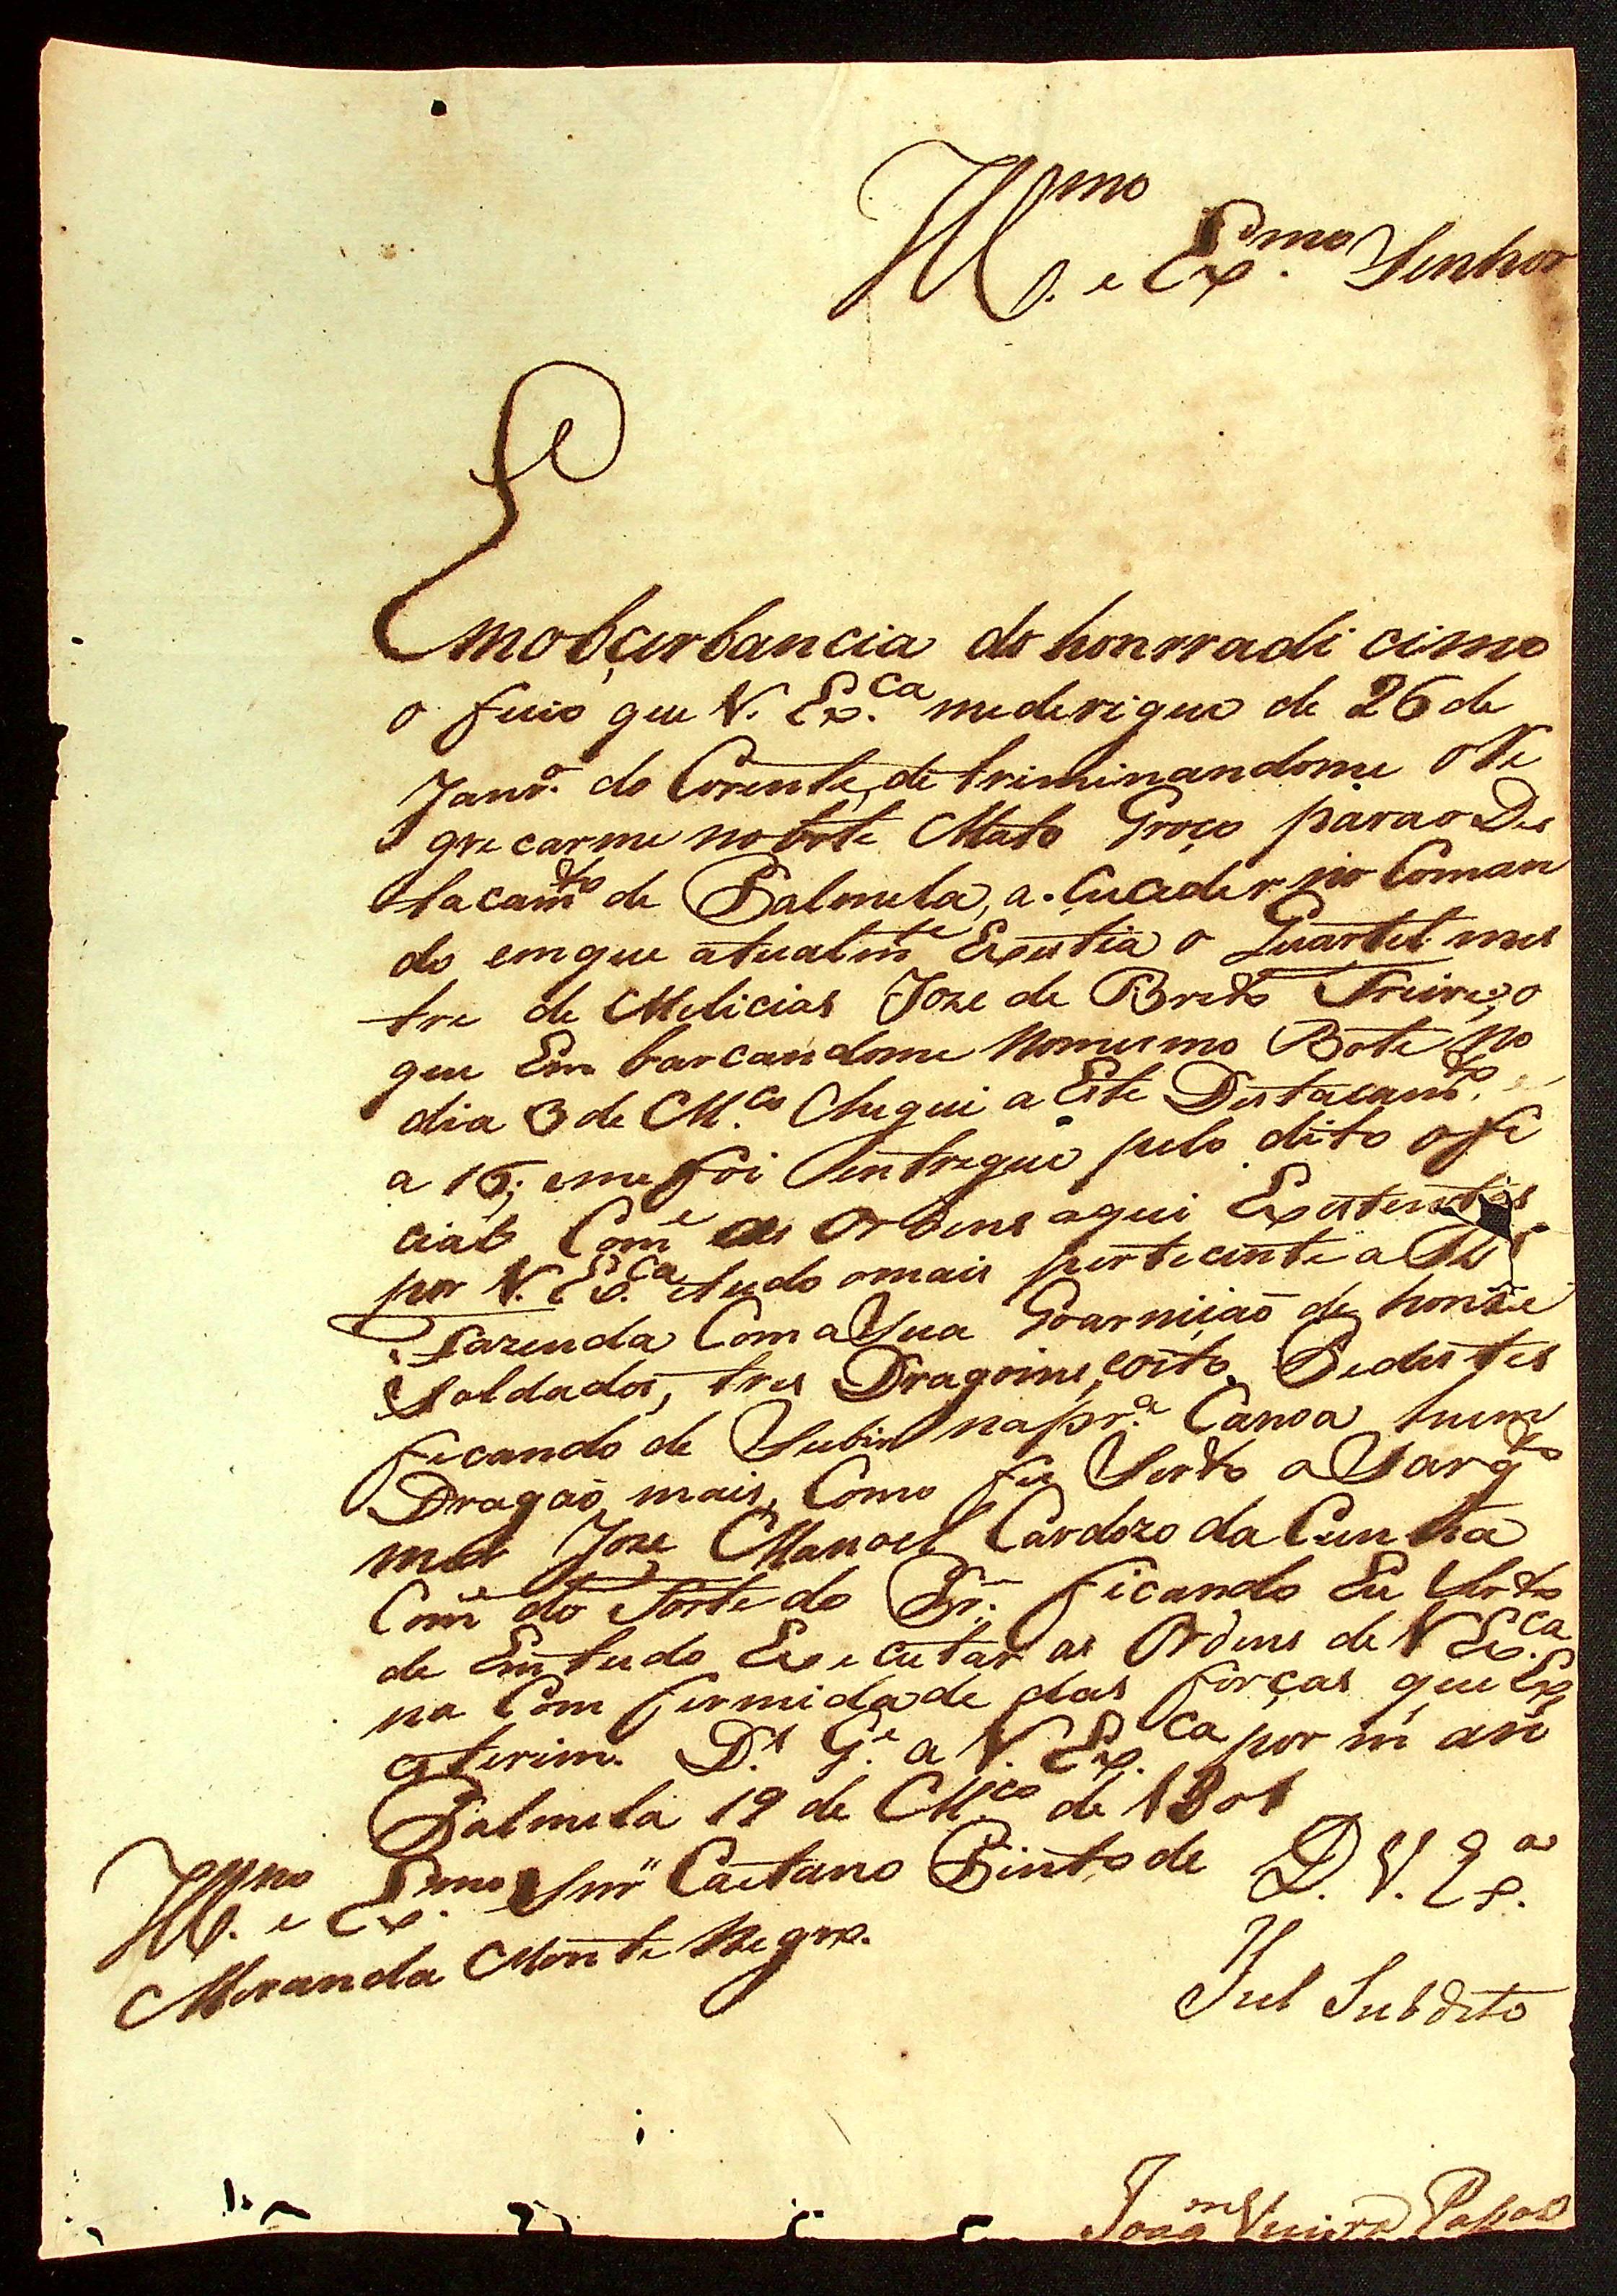 Ill.mo e Ex.mo Senhor
Em obçerbancia do honrradi cimo
o ficio que V. Ex.ca mederigue de 26 de
Janr.o do Corente, detriminandome o Re
gre carme nobote Mato Groço parao Des
tacam.to de Palmela, a çuceder no Coman
do emque atualm.te Existia o Quartel mes
tre de Melicias Joze de Brito Freire, o
que Em barcandome nomesmo Bote no
dia 3 de M.co Chegui a Este Destacam.to
a 16; eme foi entregue pelo dito ofi
cial Com.e as Ordens aqui Existentes
por V. Ex.ca etudo omais pertecente a R.
Fazenda Com a Sua Goarniçaõ de honze
Soldados, tres Dragoins, eoito Pedestes
ficando de Subir napr.a Canoa hum
Dragaõ mais, Como fes Serto o Sarg.to
mor Joze Manoel Cardozo da Cunha
Com.e do Forte do Pr. ficando Eu Serto
de Em tudo Executar as Ordens de V Ex.ca
na Com formidade das forças que Ex
esterim. D.s G.e a V. Ex.ca por m an
Palmela 19 de M.co de 1801
Ill.mo e Ex.mo Snr Caetano Pinto de
Miranda Monte Negro.
D. V. Ex.a
Fiel Subdito
Joaq.m Vieira Passos